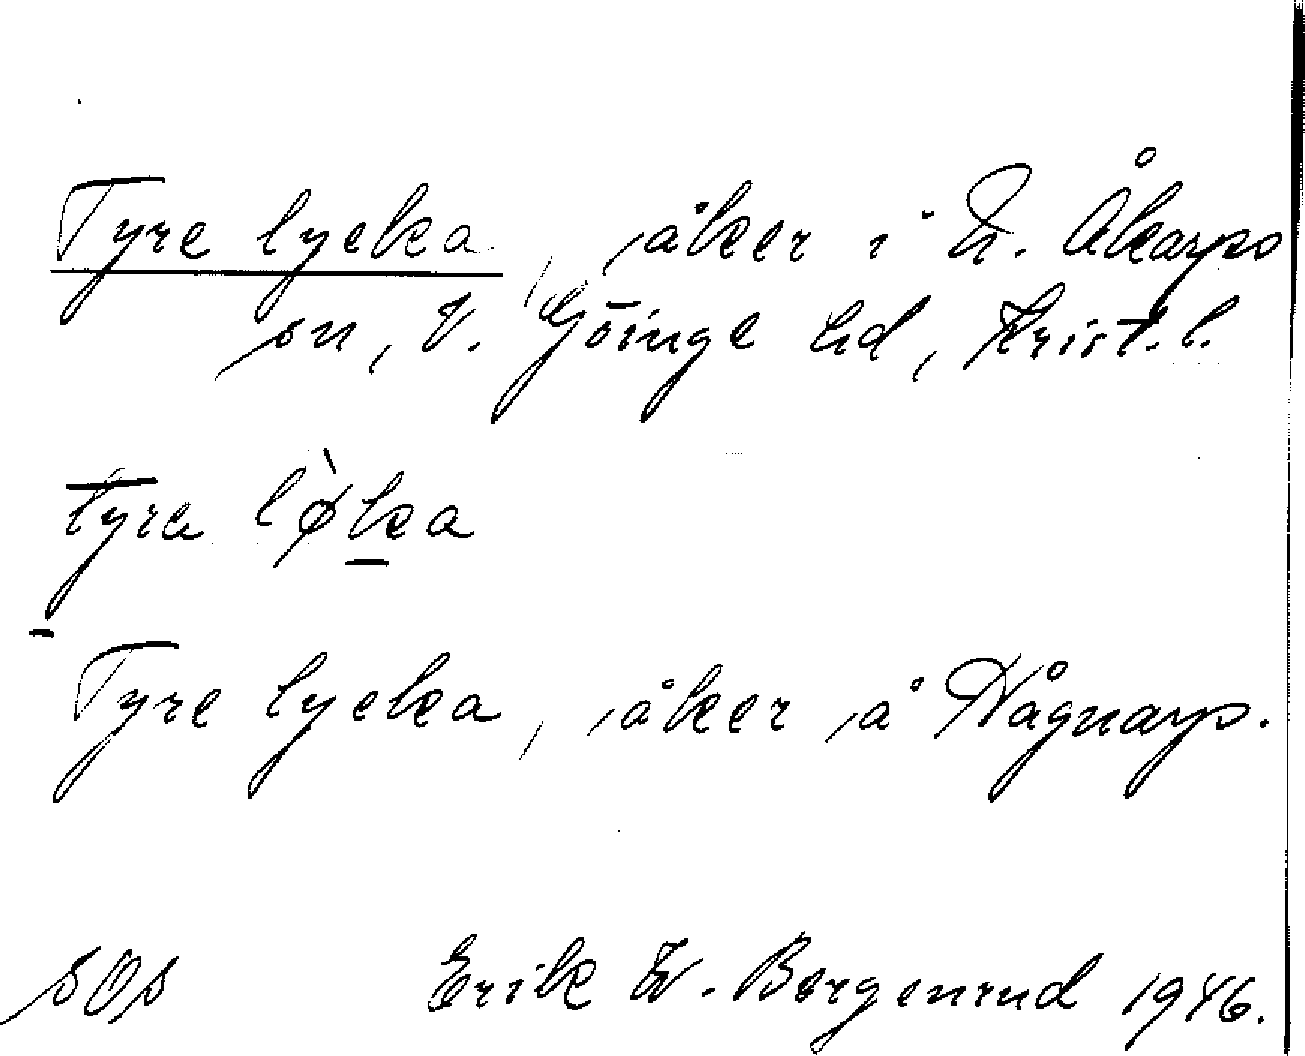 Tyre lycka, åker i N. Åkarps
sn, V. Göinge hd, Krist. l.
tyra lø̀ka
Tyre lycka, åker å Vågnarp.
sOs Erik W. Bergenrud 1946.